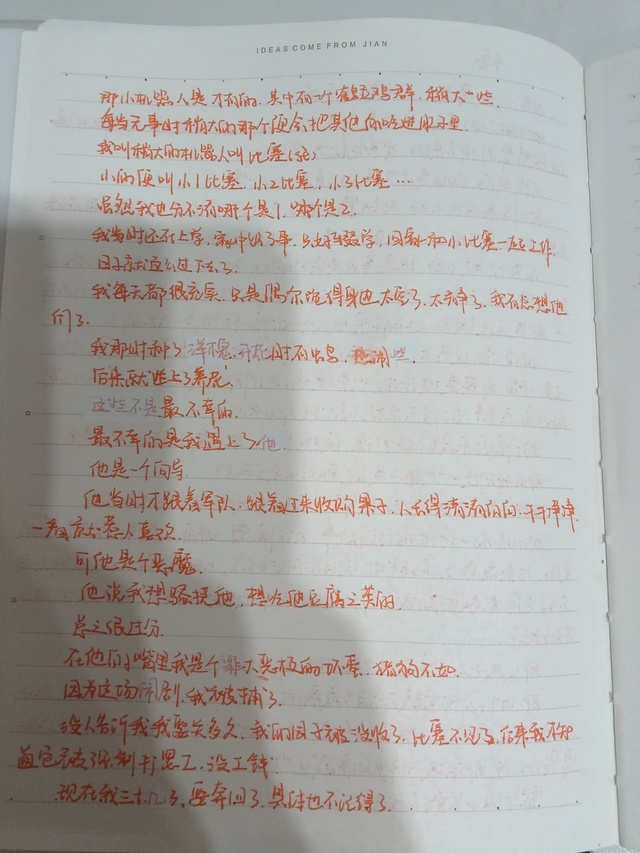 IDEAS COME FROM JIAN
那小机器人是才有的.其中有一个鹤立鸡群.稍大一些
每当无事时稍大的那个便会把其他的吃进肚子里
我叫稍大的机器人叫比塞(sāi)
小的便叫小1比塞.小2比塞.小3比塞....
虽然我也分不清哪个是1.哪个是2.
我当时还在上学.家中出了事.只好辍学.回家和小比塞一起工作.
日子就这么过下去了.
我每天都很充实.只是偶尔觉得身边太空了.太安静了.我有点想他
们了.
我那时种了洋槐.开花时有出息.热闹些.
后来就迷上了养花.
这些不是最不幸的.
最不幸的是我遇上了他
他是一个向导
他当时不跟着军队.跟着过来收购果子.人长得清清白白.干干净净.
一看就惹人喜欢.
可他是个恶魔.
他说我想骚扰他.想吃他豆腐之类的.
总之很过分.
在他们嘴里我是个罪大恶极的坏蛋.猪狗不如.
因为这场闹剧.我被捕了.
没人告诉我我要关多久.我的园子被没收了.比塞不见了.后来我才知
道它被强制打黑工.没工钱.
现在我三十几了.要奔四了.具体也不记得了.